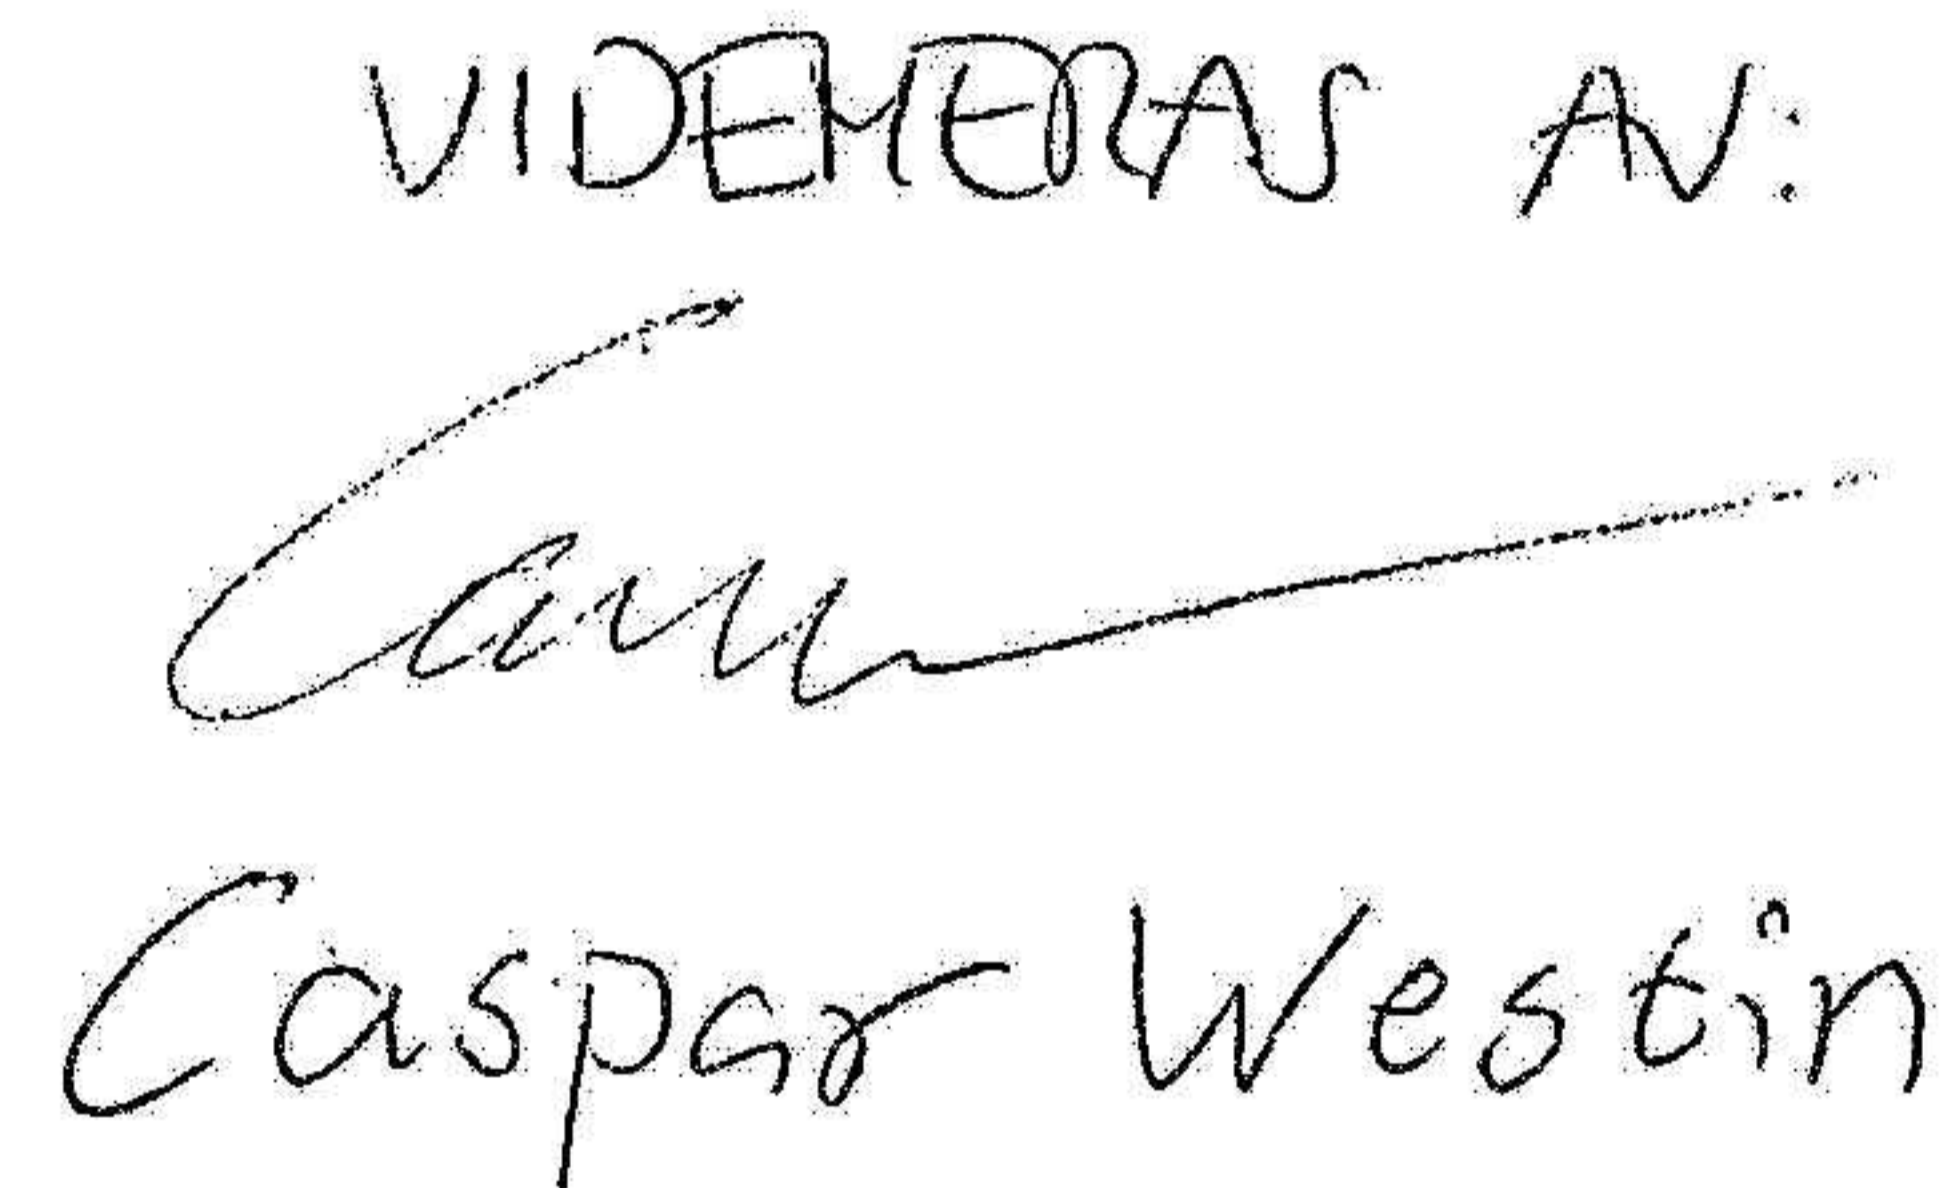 VIDEMERAS AV:
Caspar Westin